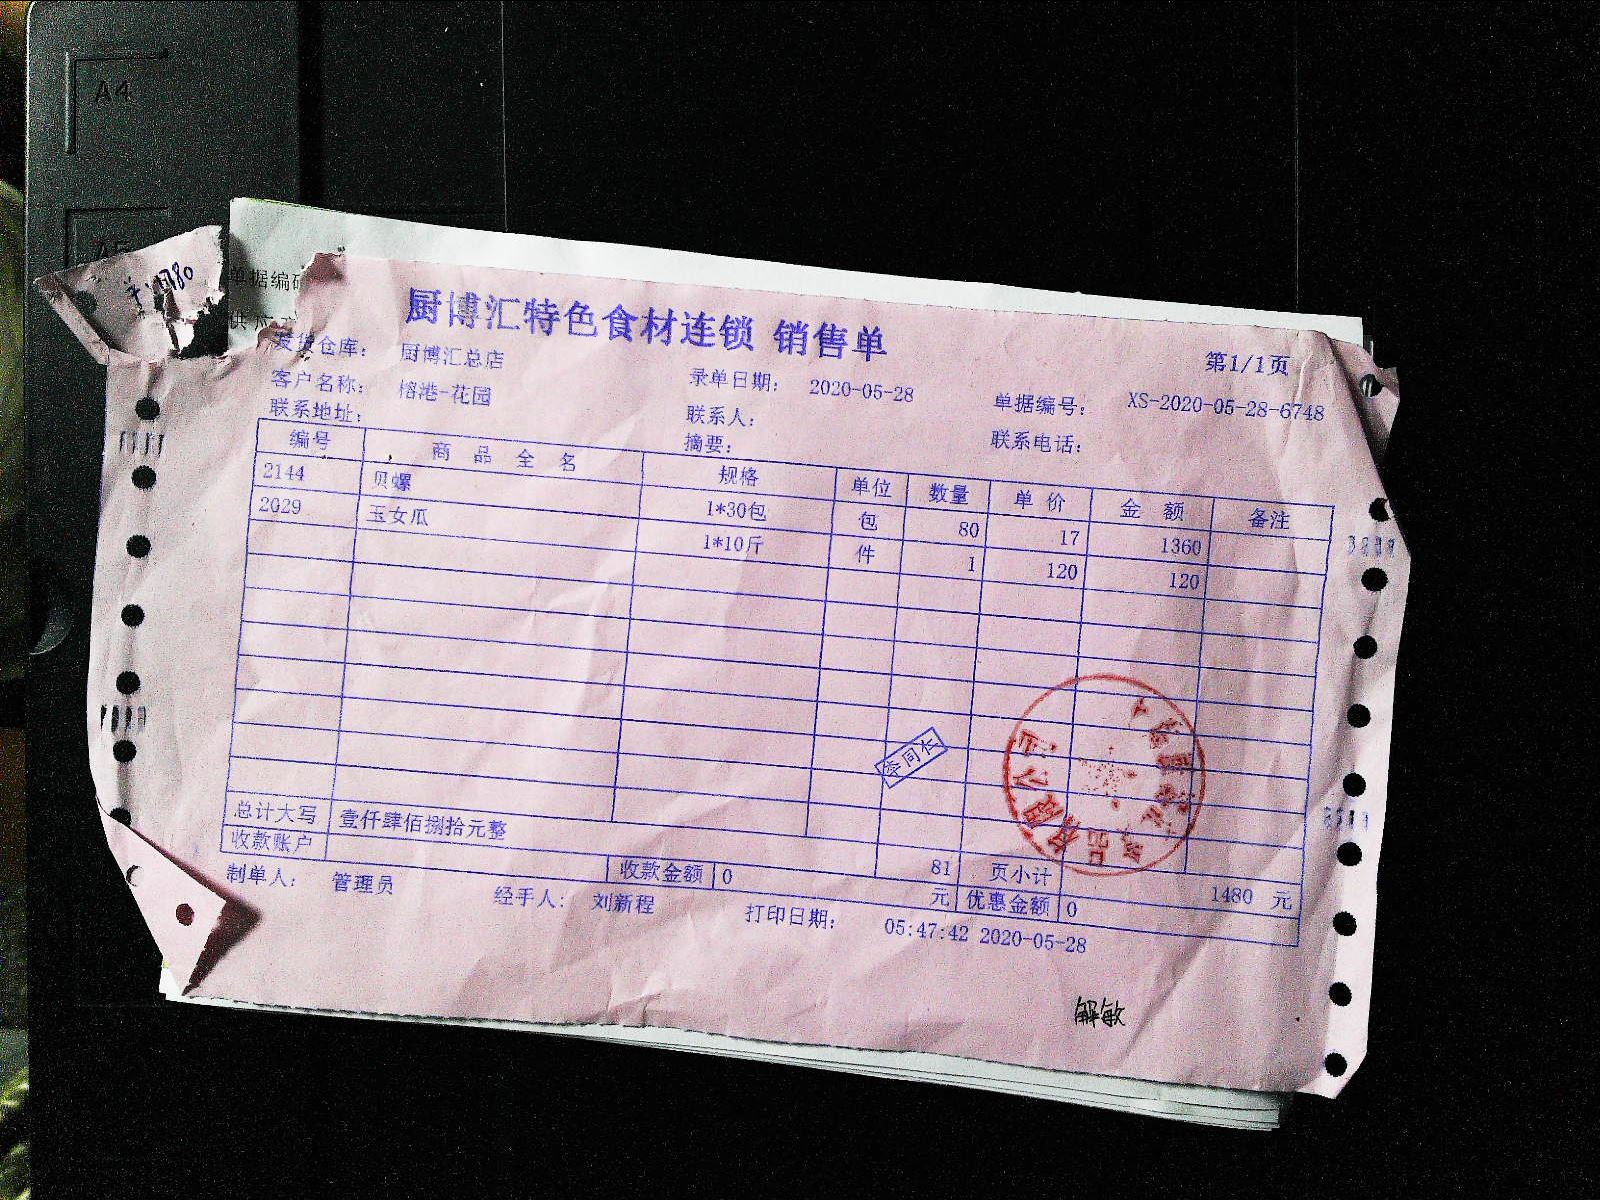 A4
A5
单据编码
厨博汇特色食材连锁 销售单
第1/1页
发货仓库： 厨博汇总店
录单日期： 2020-05-28
单据编号： XS-2020-05-28-6748
客户名称： 榕港-花园
联系人：
联系电话：
联系地址：
摘要：
编号 商 品 全 名 规格 单位 数量 单 价 金 额 备注
2144 贝螺 1*30包 包 80 17 1360
2029 玉女瓜 1*10斤 件 1 120 120
李同长
总计大写 壹仟肆佰捌拾元整 81 页小计 1480 元
收款账户 收款金额 0 元 优惠金额 0
制单人： 管理员 经手人： 刘新程 打印日期： 05:47:42 2020-05-28
解敏